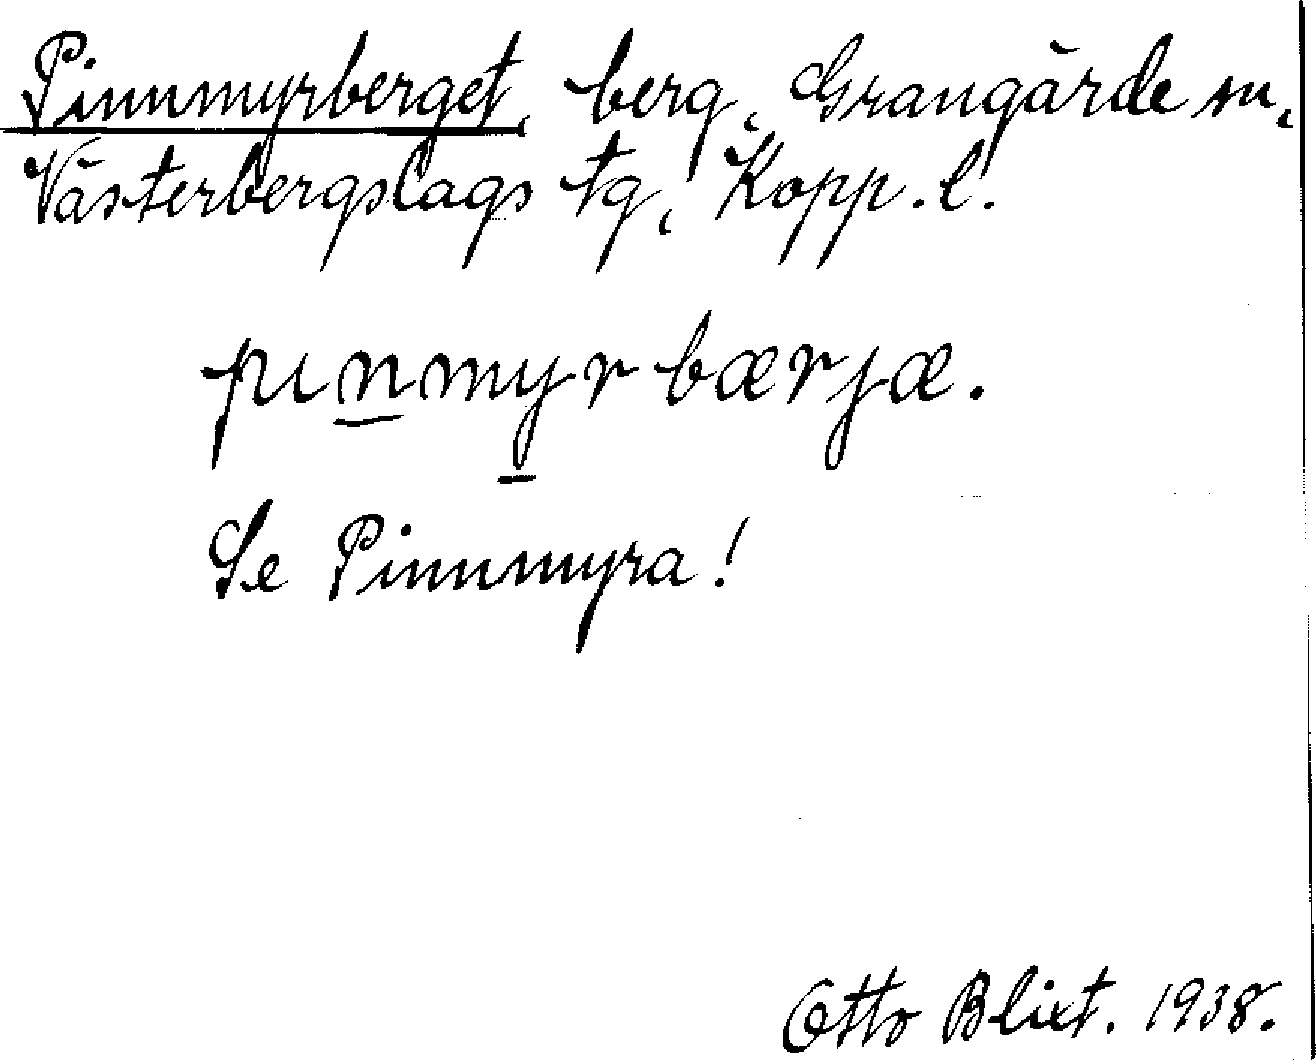 Pinnmyrberget, berg, Grangärde sn,
Västerbergslags tg, Kopp. l.
pınmyrbærjæ.
Se Pinnmyra!
Otto Blixt. 1938.